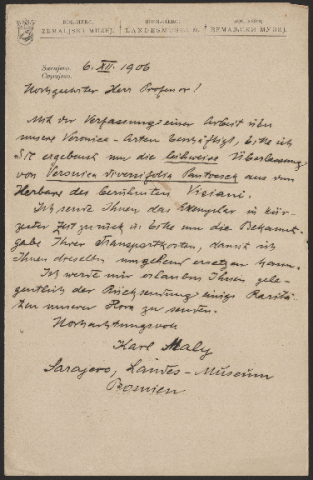 BOS.-HERC. BOSN.-HERC. БОС.-ХЕРЦ.
ZEMALJSKI MUZEJ. LANDESMUSEUM. ЗЕМАЉСКИ МУЗЕЈ.
Sarajevo, 6. XII. 1906
Сарајево,
Hochgeehrter Herr Professor!
Mit der Verfassung einer Arbeit über
unsere Veronica-Arten beschäftigt, bitte ich
Sie ergebenst um die leihweise Überlassung
von Veronica diversifolia Pantocsek aus dem
Herbare des berühmten Visiani.
Ich sende Ihnen das Exemplar in kür-
zester Zeit zurück u. bitte um die Bekannt-
gabe Ihrer Transportkosten, damit ich
Ihnen dieselben umgehend ersetzen kann.
Ich werde mir erlauben Ihnen gele-
gentlich der Rücksendung einige Raritä-
ten unserer Flora zu senden.
Hochachtungsvoll
Karl Maly
Sarajevo, Landes-Museum
Bosnien